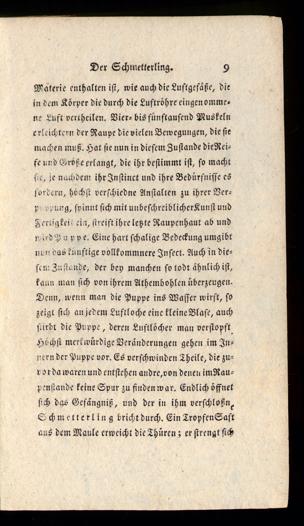 Der Schmetterling. 9
Materie enthalten ist, wie auch die Luftgefäße, die
in dem Körper die durch die Luftröhre eingenomme-
ne Luft vertheilen. Vier- bis fünftausend Muskeln
erleichtern der Raupe die vielen Bewegungen, die sie
machen muß. Hat sie nun in diesem Zustande die Rei-
fe und Größe erlangt, die ihr bestimmt ist, so macht
sie, je nachdem ihr Instinct und ihre Bedürfnisse es
fordern, höchst verschiedne Anstalten zu ihrer Ver-
puppung, spinnt sich mit unbeschreiblicher Kunst und
Fertigkeit ein, streift ihre letzte Raupenhaut ab und
wird Puppe. Eine hart schalige Bedeckung umgibt
nun das künftige vollkommnere Insect. Auch in die-
sem Zustande, der bey manchen so todt ähnlich ist,
kann man sich von ihrem Athembohlen überzeugen.
Denn, wenn man die Puppe ins Wasser wirft, so
zeigt sich an jedem Luftloche eine kleine Blase, auch
stirbt die Puppe, deren Luftlöcher man verstopft.
Höchst merkwürdige Veränderungen gehen im In-
nern der Puppe vor. Es verschwinden Theile, die zu-
vor da waren und entstehen andre, von denen im Rau-
penstande keine Spur zu finden war. Endlich öffnet
sich das Gefängniß, und der in ihm verschloßne
Schmetterling bricht durch. Ein Tropfen Saft
aus dem Maule erweicht die Thüren; er strengt sich